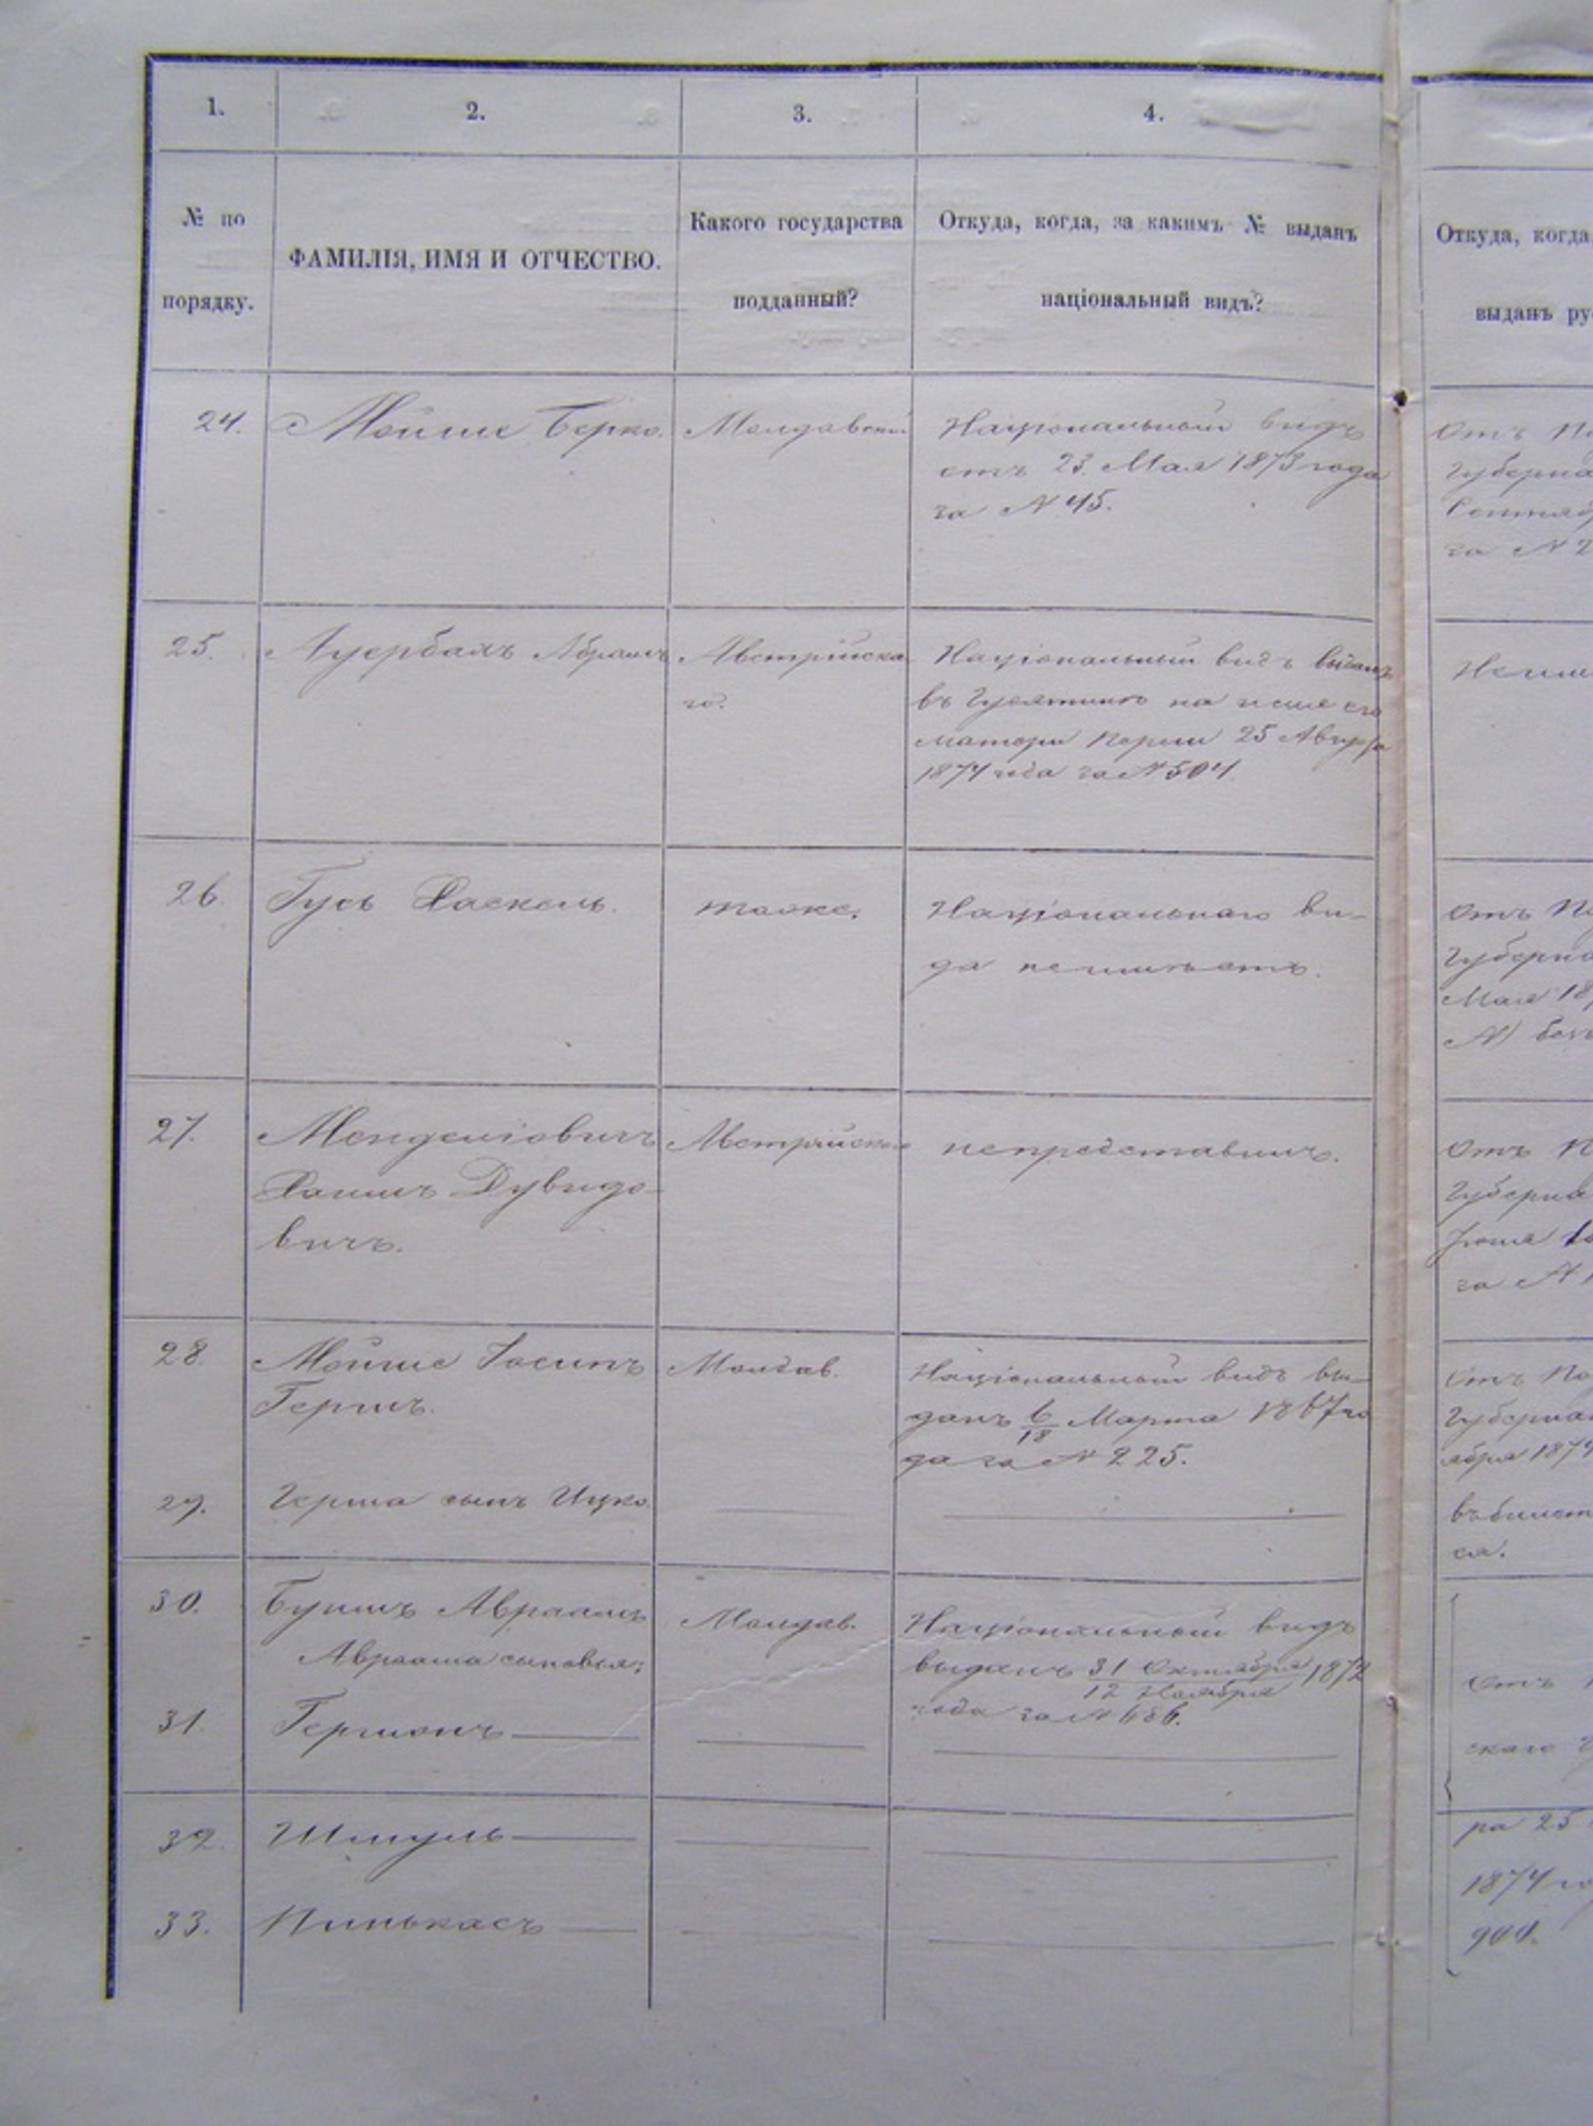 1.
2.
3.
4.
№ по
порядку.
ФАМИЛІЯ, ИМЯ И ОТЧЕСТВО.
Какого государства
подданный?
Откуда, когда, за какимъ № выданъ
національный видъ?
Откуда, когда
выданъ ру
24.
Мойше Берко.
Молдавскій
Національный видъ
отъ 23. Мая 1873 года
за N 45.
Отъ По
Губерна
Сентяб
за N 2
25.
Ауербахъ Абрамъ
Австрійска
го.
Національный видъ выданъ
въ Гусятинѣ на имя его
матери Перли 25 Августа
1874 года за N 504.
Неим
26.
Гусь Хаскель.
тоже.
Національнаго ви-
да неимѣетъ.
Отъ По
Губерна
Мая 18
N
27.
Менделіовичъ
Хаимъ Дувидо-
вичъ.
Австрійскаго
непредставилъ.
Отъ П
Губерна
Іюня 1
за N
28.
Мойше Іосипъ
Гершъ.
Молдав.
Національный видъ вы-
данъ 6/18 Марта 1867 го
да за N 225.
Отъ По
Губерна
ября 187
29.
Герша сынъ Ицко.
въ билет
ся.
30.
Абраамъ
Авраама сыновья:
Молдав.
Національный видъ
выданъ 31 Октября 1872
12 Ноября
года за N 686.
Отъ
31.
Гершонъ
скаго Г
32.
Шмуль
ра 25
1874 го
33.
Пинькасъ